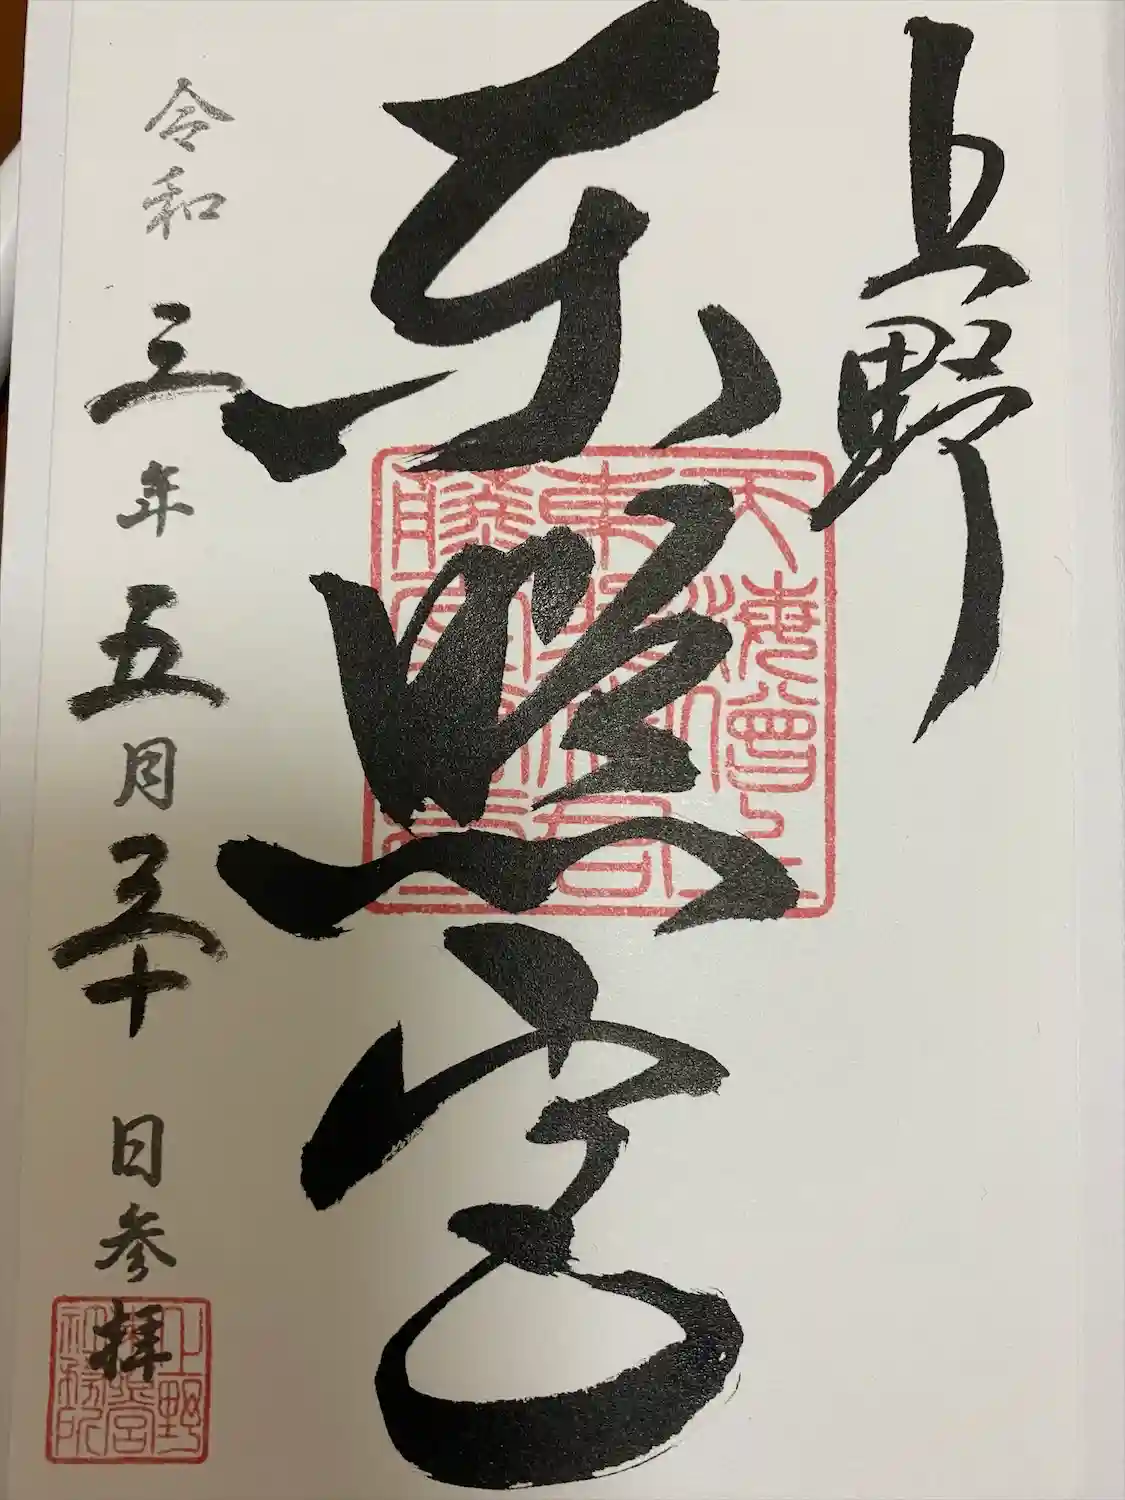 上野
東照宮
天海僧正
令和三年五月三十日参拝
上野
東照宮
社務所